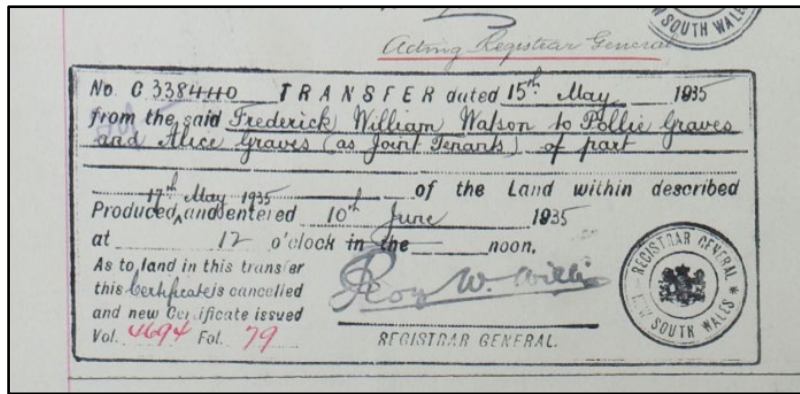 SOUTH WALES
Acting Registrar General
No. C 338440 TRANSFER dated 15th May 1935
from the said Frederick William Watson to Pollie Graves
and Alice Graves (as Joint Tenants) of part
of the Land within described
17th May 1935
Produced and entered 10th June 1935
at 12 o'clock in the noon.
As to land in this transfer
this Certificate is cancelled
and new Certificate issued
Vol. 4694 Fol. 79
Roy W. Willis
REGISTRAR GENERAL.
REGISTRAR GENERAL
NEW SOUTH WALES